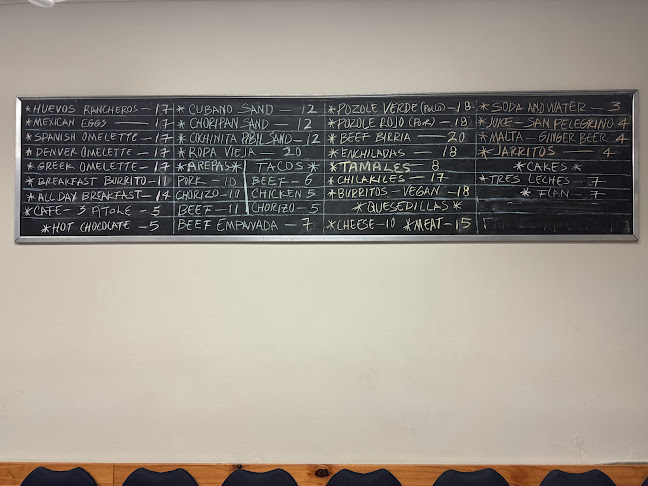 *HUEVOS RANCHEROS - 17
*MEXICAN EGGS - 17
*SPANISH OMELETTE - 17
*DENVER OMELETTE - 17
*GREEK OMELETTE - 17
*BREAKFAST BURRITO - 11
*ALL DAY BREAKFAST - 14
*CAFE - 3 ATOLE - 5
*HOT CHOCOLATE - 5
*CUBANO SAND - 12
*CHORIPAN SAND - 12
*COCHINITA PIBIL SAND - 12
*ROPA VIEJA - 20
*AREPAS*
PORK - 10
CHORIZO - 10
BEEF - 11
TACOS *
BEEF - 6
CHICKEN 5
CHORIZO - 5
BEEF EMPANADA - 7
*POZOLE VERDE (POLLO) - 18
*POZOLE ROJO (PORK) - 18
*BEEF BIRRIA - 20
*ENCHILADAS - 18
*TAMALES - 8
*CHILAKILES - 17
*BURRITOS - VEGAN - 18
*QUESEDILLAS*
*CHEESE - 10 *MEAT - 15
*SODA AND WATER - 3
*JUICE - SAN PELEGRINO 4
*MALTA - GINGER BEER 4
*JARRITOS - 4
*CAKES*
*TRES LECHES - 7
* FLAN - 7